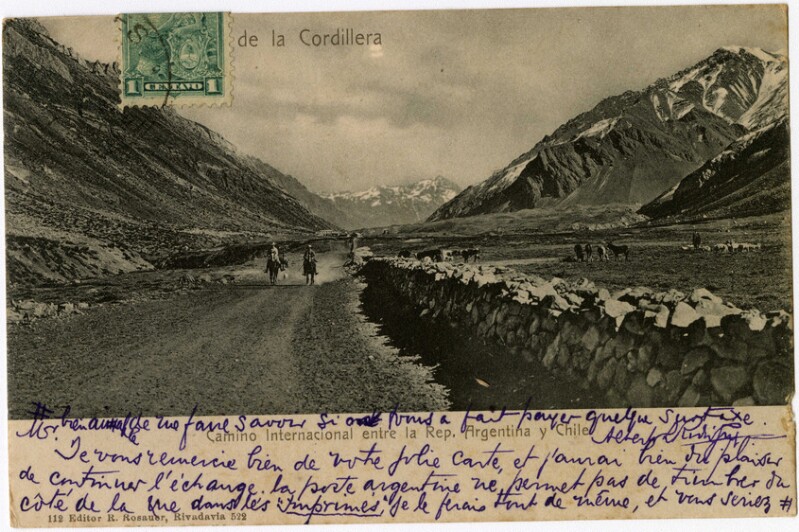 de la Cordillera
1 CENTAVO 1
# bien aimable me faire savoir si on vous a fait payer quelque surtaxe.
Camino Internacional entre la Rep. Argentina y Chile
Je vous remercie bien de votre jolie carte, et j'aurai bien du plaisir
de continuer l'échange. la poste argentine ne permet pas de timbrer du
côté de la vue dans les "imprimés", je le ferais tout de même, et vous seriez #
112 Editor R. Rosauer, Rivadavia 522